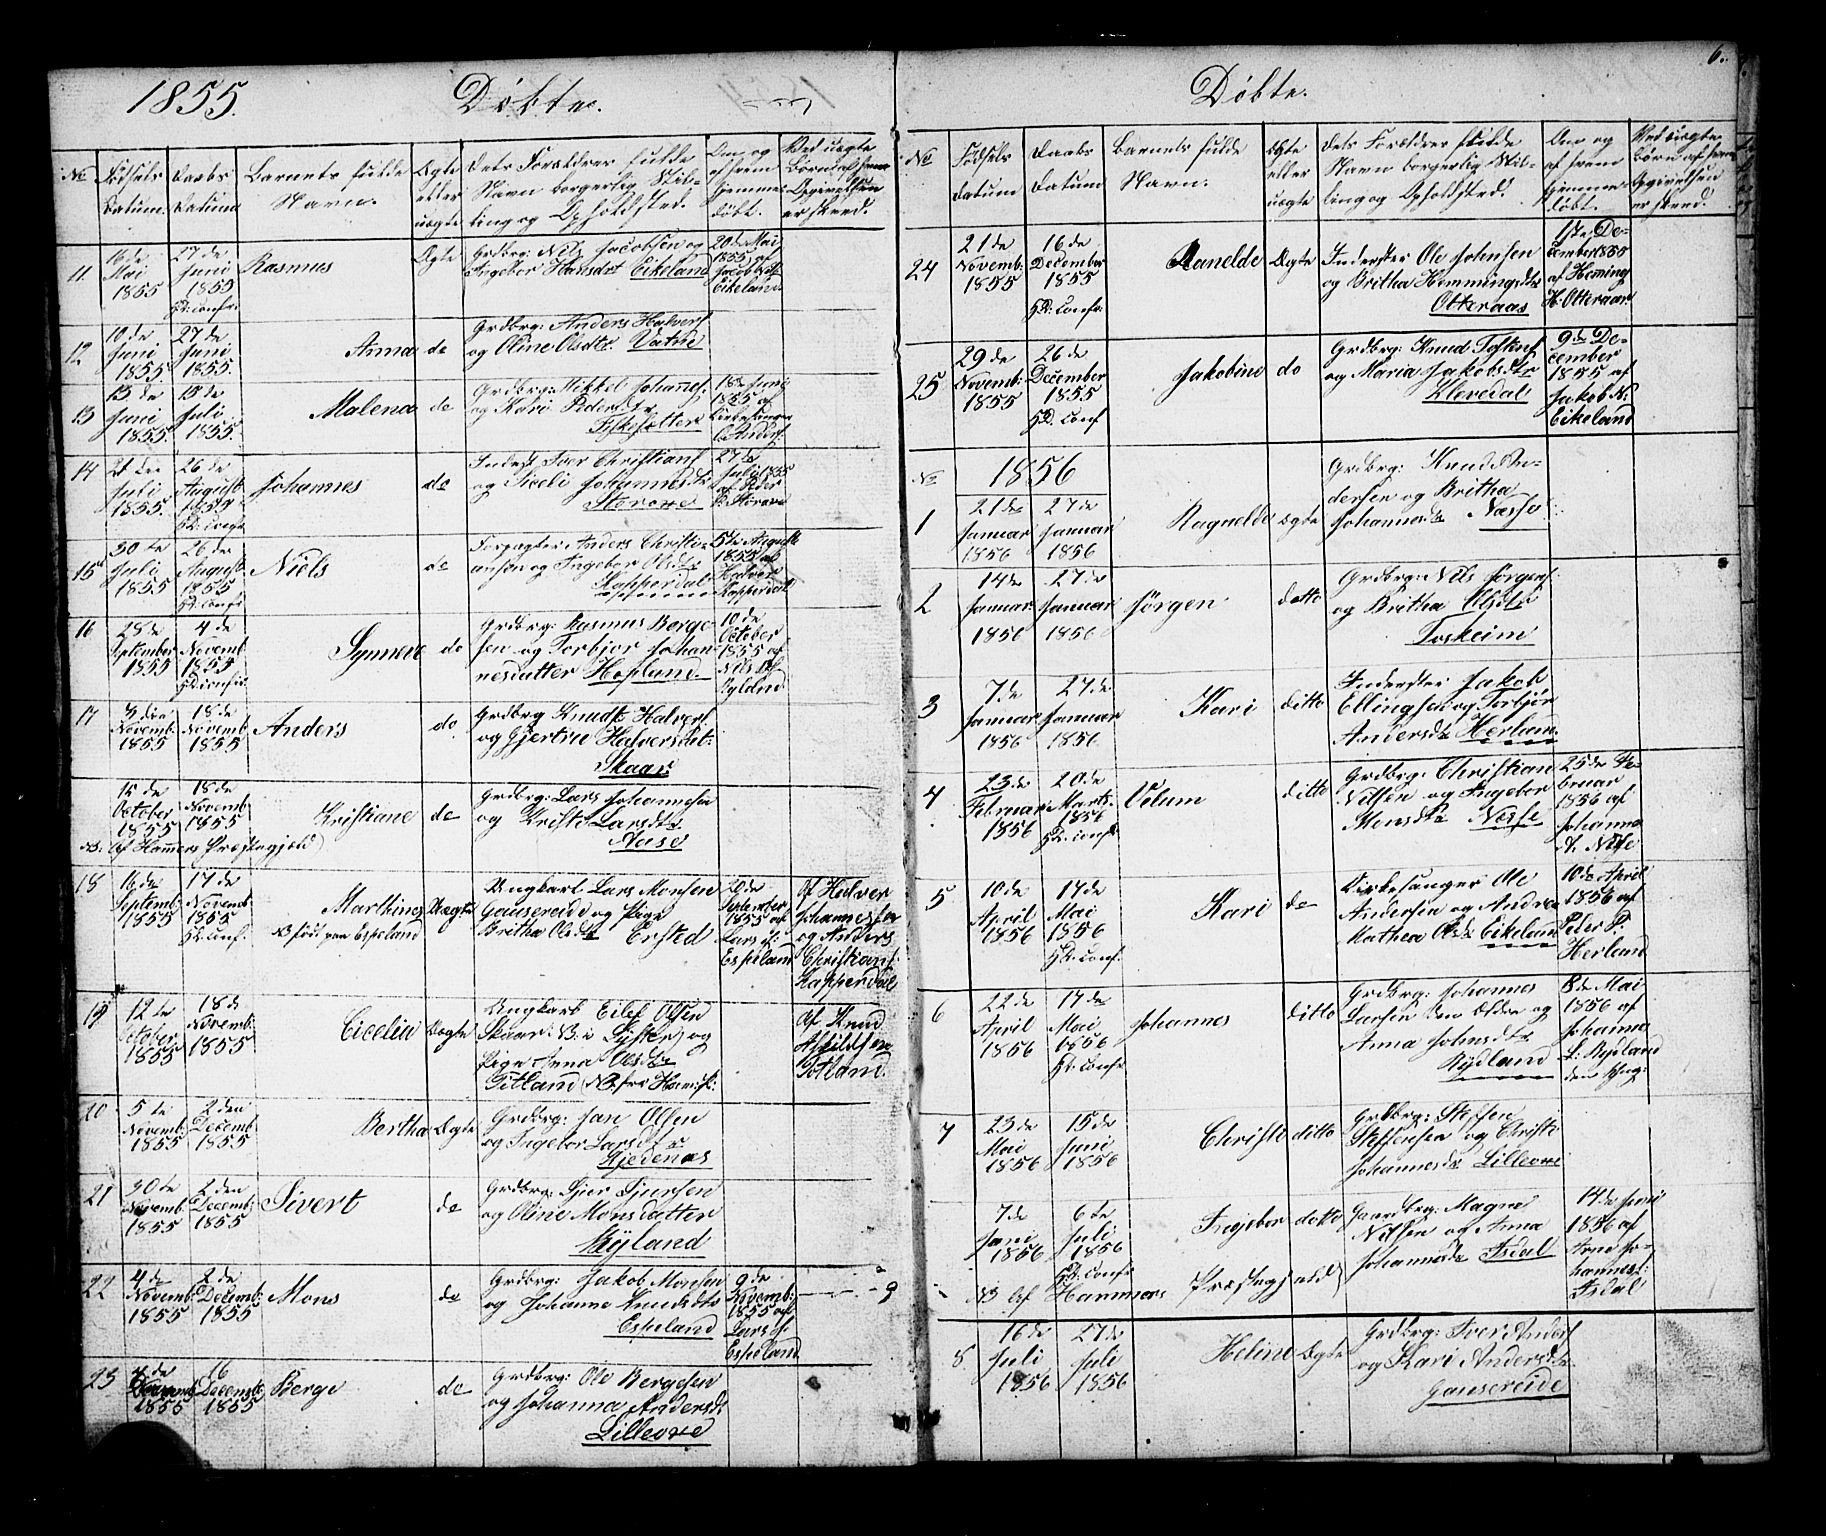 1855.
Döbte.
No
Födsels
Datum.
Daabs
Datum
Barnets fulde
Navn.
Ægte
eller
uægte
Dets Forældres fulde
Navn borgerlig Stil-
ling og Opholdsted.
Om og
af hvem
hjemme
döbt.
Ved uægte
Börn af hvem
Opgivelsen
er skeed.
11
16 de
Mai
1855
27 de
Juni
1855
Rasmus
Ægte
Grdbrg: Nils Jacobsen og
Ingebor Hansdtr Eikeland
20 de Mai
1855 af
Eikeland
12
10 de
Juni
1855
27 de
Juni
1855.
Anna
do
Grdbrg: Anders Halvers:
og Oline Olsdtr. Vatne
13
13 de
Juni
1855.
15 de
Juli
1855.
Malena
do
Grdbrg: Mikkel Johanes:
og Kari Pedersdtr
Fiskesætter
18de Juni
1855 af
Kirkesanger
14
21 de
Juli
1855.
26 de
August
1855
Johannes
do
Inderst Iver Christians:
og Siceli Johannesdtr
Storove
27 de
Juli 1855
af Peder
Storove
15
30 te
Juli
1855
26 de
August
1855
HD. Conf:
Niels
do
Forpagter Anders Christi-
ansen og Ingebor Olsdtr
Kapperdal
5te August
1855 af
Halvor
Kapperdal
16
28 de
September
1855
4 de
Novemb:
1855
Synneve
do
Grdbrg: Rasmus Berge
sen og Torbjor Johan
nesdatter Hopland.
10 de
October
1855 af
Nils
Ryland
17
Novemb:
1855
18 de
Novemb
1855
Anders
do
Grdbrg Knudt Halvers:
og Gjertrue Halversdat:
Skaar.
15 de
October
1855
18 de
Novemb:
1855
Kristiane
do
Grdbrg: Lars Johannesen
og Kristi Larsdtr.
Aase
NB: Af Hamers Præstegjeld)
18
16 de
Septemb:
1855
17 de
Novemb
1855
HD. Conf.
Marthines
NB födt paa Espeland
Uægte
Ungkarl Lars Monsen
Gausereide og Pige
Britha Olsdtr Ersted
20 de
September
1855 af
Lars
Espeland
Af Halver
Johannessen
og Anders
Christians:
Kapperdal
19
12 te
October
1855
18 de
Novemb:
1855
Cicelia
Uægte
Ungkarl Eilef Olsen
Skaar: NB: i Lyster) og
Pige Anna Olsdtr
Titland (NB. fra Ham: Pr:
Af Knud
Askildsen
Totland.
20
5 te
Novemb:
1855
2 den
Decemb:
1855
Bertha
Ægte
Grdbrg: Jan Olsen
og Ingebor Larsdtr
Gjedenæs
21
30 te
Novemb:
1855
2 den
Decemb:
1855
Sivert
do
Grdbrg: Sjur Sjursen
og Oline Monsdatter
Myland
22
4 de
Novemb:
1855
2 de
Decemb:
1855
Mons
do
Grdbrg: Jakob Monsen
og Johanne Knudsdtr
Espeland
9 de
Novemb:
1855 af
Lars
Espeland
23
4 de
1855
16
Decembr
1855
Berge
do
Grdbrg: Ole Bergesen
og Johanna Andersdtr
Lilleove
6.
Döbte.
No
Födsels
Datum
Daabs
Datum
Barnets fulde
Navn.
Ægte
eller
uægte
Dets Forældres fulde
Navn borgerlig Stil-
ling og Opholdsted.
Om og
af hvem
hjemme
döbt.
Ved uægte
börn af hvem
Opgivelsen
er skeed.
24
21 de
Novemb:
1855
16 de
December
1855
HD. Conf:
Ranelde
Ægte
Inderster Ole Johnsen
og Britha Hemmingsdtr
Otteraas
1ste De-
cember 1855
af Heming
H. Otteraas
25
29 de
Novemb:
1855
26 de
December
1855
HD. Conf
Jakobine
do
Grdbrg: Knud
og Maria Jakobsdtr
Klevedal
9 de De-
cember
1855 af
Jakob N:
Eikeland
No
1856
1
21 de
Januar
1856
27 de
Januar
1856
Ragnelde
Ægte
Grdbrg: Knud An-
dersen og Britha
Johannesdtr Næsse
2
14 de
Januar
1856
27 de
Januar
1856
Jörgen
detto
Grdbrg: Nils Jörgens:
og Britha Olsdtr
Toskeim
3
7 de
Januar
1856
27 de
Januar
1856
Kari
ditto
Inderster Jakob
Ellingsen og Torbjör
Andersdtr Herland.
4
23 de
Februar
1856
20 de
Marts
1856
HD. Conf:
Velum
ditto
Grdbrg: Christian
Nilsen og Ingebor
Monsdtr Næsse
25 de Fe-
bruar
1856 af
Johannes
A. Næsse
5
10 de
April
1856
17 de
Mai
1856
HD. Conf.
Kari
do
Kirkesanger Ole
Andersen og Andrea
Mathea Olsdtr Eikeland
10 de April
1856 af
Peter P.
Herland
6
22 de
April
1856
17 de
Mai
1856
HD. Conf:
Johannes
ditto
Grdbrg: Johannes
Larsen den ældre og
Anna Johnsdtr
Rydland
8 de Mai
1856 af
Johannes
L: Rydland
den yng:
7
23 de
Mai
1856
15 de
Juni
1856
Christi
ditto
Grdbrg: Steffen
Steffensen og Christi
Johannesdtr Lilleove
7 de
Juni
1856
6 te
Juli
1856
HD. Conf:
Ingebor
detto
Gaardbrg: Magne
Nilsen og Anna
Johannesdtr Isdal
14 de Juni
1856 af
Arne Jo-
hannes:
Isdal
NB Af Hammers Præstegjeld)
8
16 de
Juli
1856
27 de
Juli
1856
Heline
Ægte
Grdbrg: Iver Anders:
og Kari Andersdtr.
Gausereide